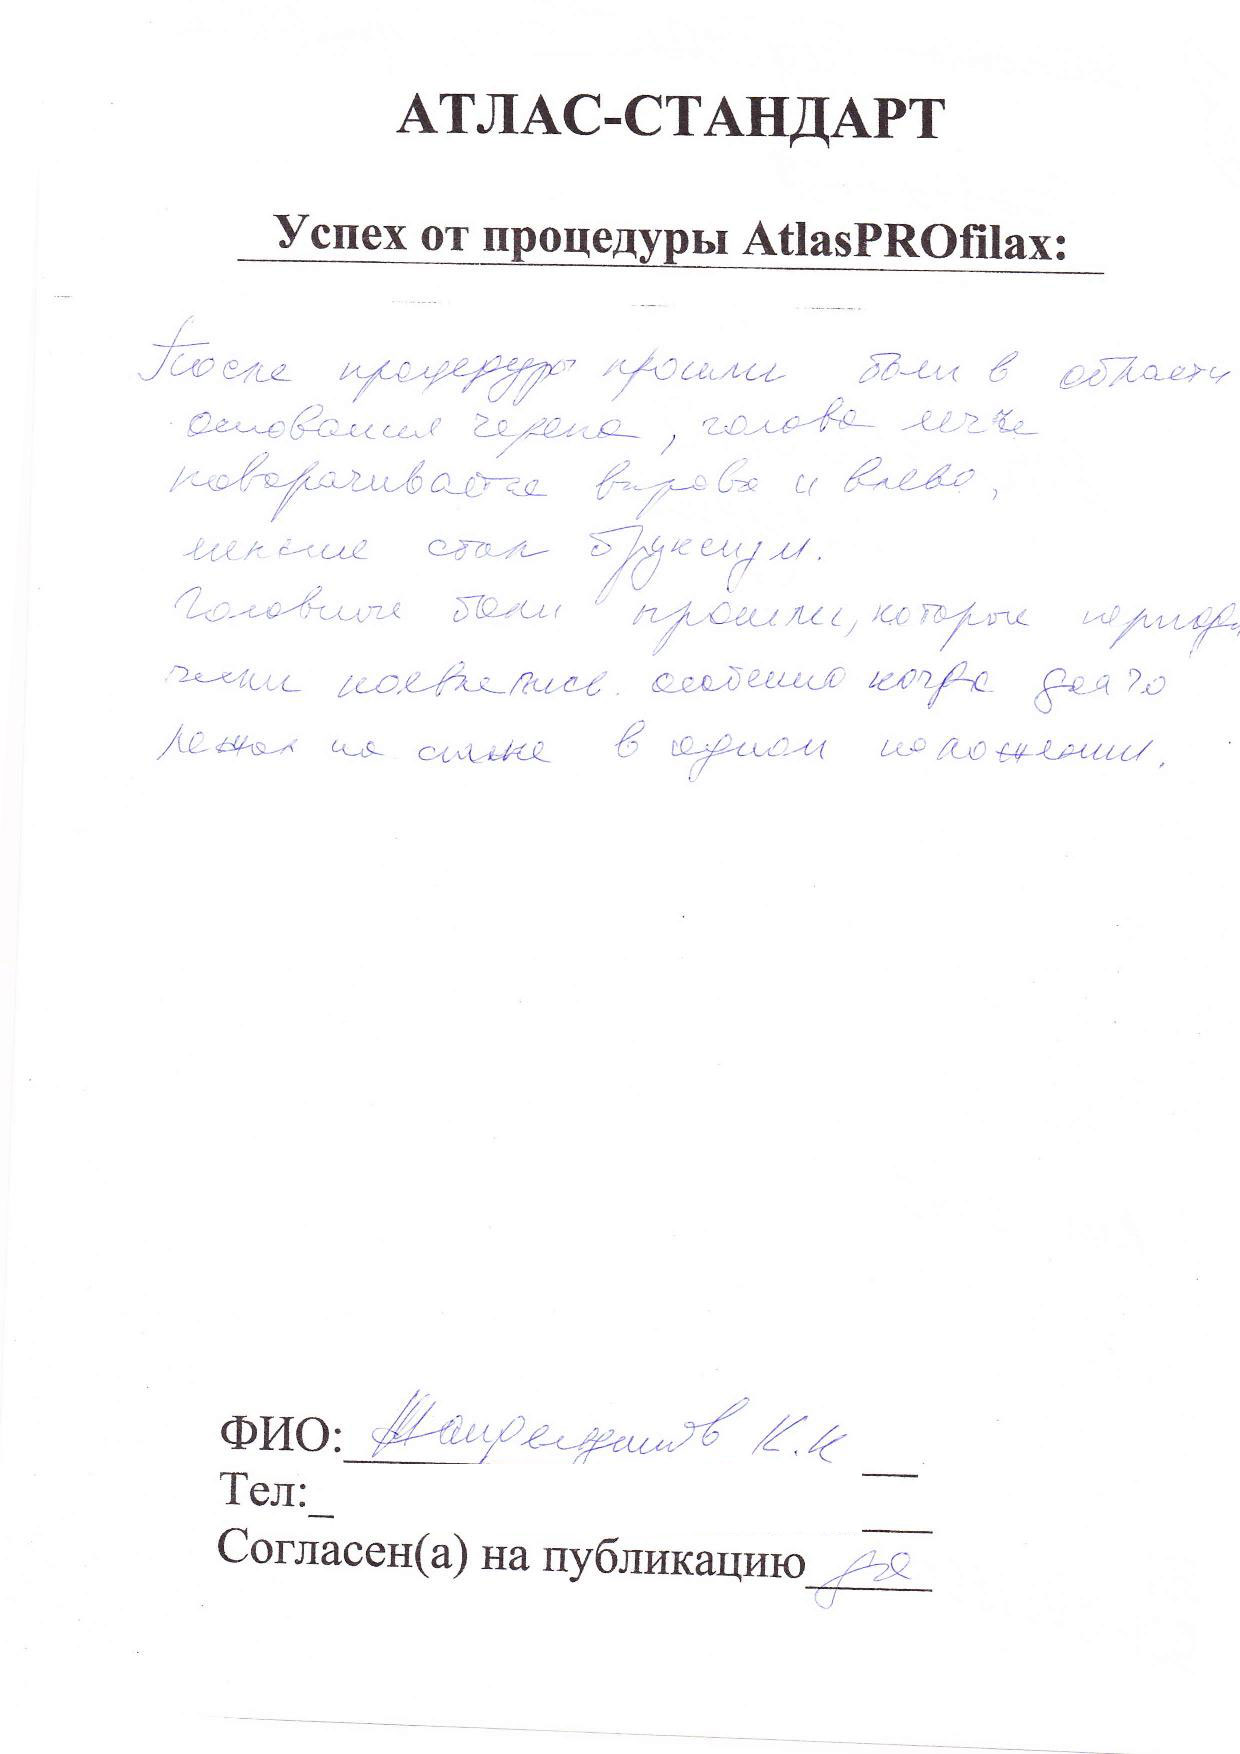 АТЛАС-СТАНДАРТ
Успех от процедуры AtlasPROfilax:
После процедуры прошли боли в области
основания черепа, голова легче
поворачивается вправо и влево,
меньше стал бруксизм.
Головные боли прошли, которые периоди
чески появлялись особенно когда долго
лежал на спине в одном положении.
ФИО: К.К
Тел:_
Согласен(а) на публикацию да